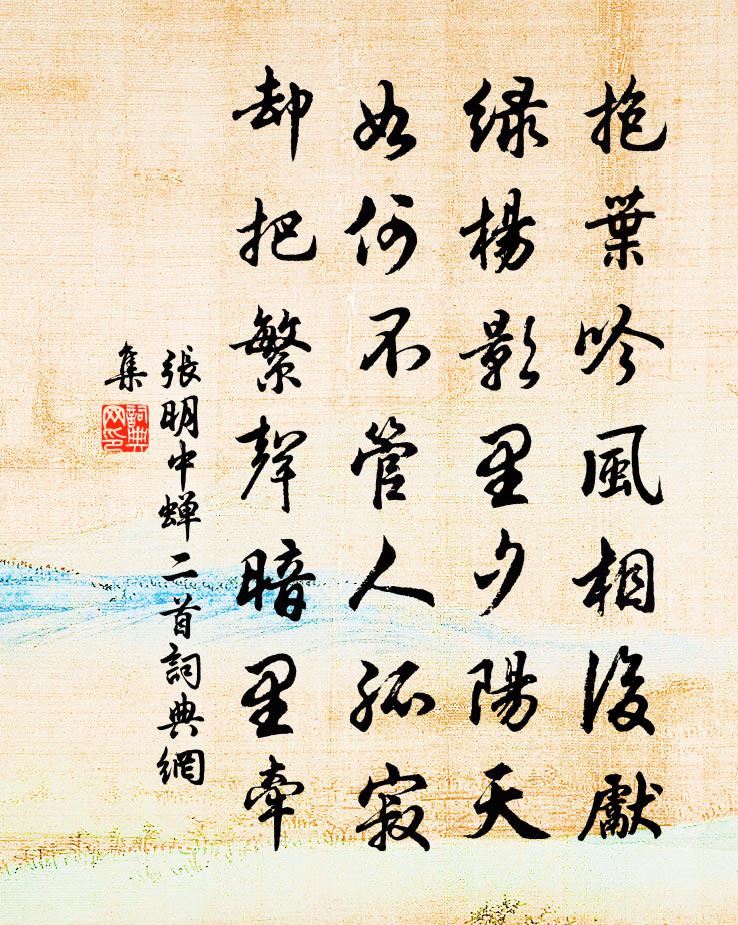 抱葉吟風相後獻
綠楊影里夕陽天
如何不管人孤寂
却把繁聲暗里牽
張明中蟬二首詞典網
集
詞典网印